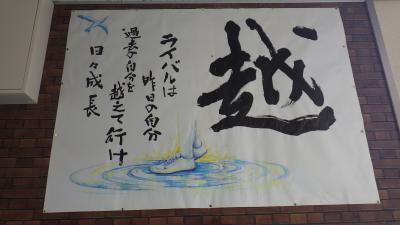 越
ライバルは
昨日の自分
過去の自分を
越えて行け
日々成長